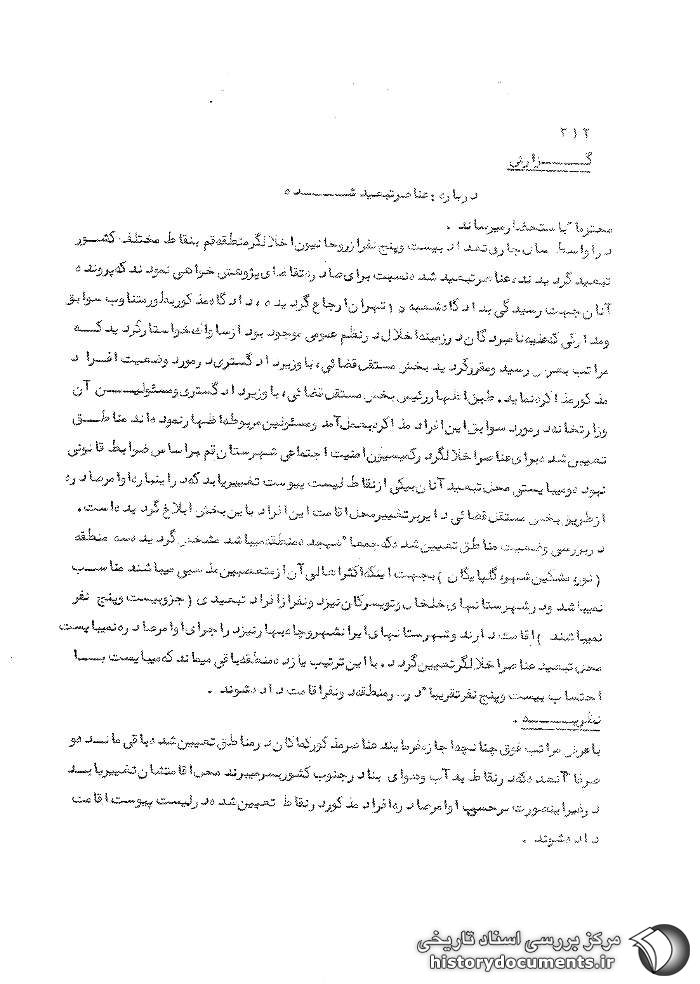 ۳۱۲
گـــزارش
درباره: عناصر تبعید شـــده
محترما" باستحضار میرساند .
در اواسط سال جاری تعداد بیست وپنج نفر از روحانیون اخلالگر منطقه قم بنقاط مختلف کشـور
تبعید گردیدند، عناصر تبعید شده نسبت برای صادره تقاضای پژوهش خواهی نمودند که پرونده
آنان جهت رسیدگی بدادگاه شعبه تهران ارجاع گردیده، دادگاه مذکور بطور متناوب سوابق
ومدارکی که علیه نامبردگان در زمینه اخلال در نظم عمومی موجود بود از ساواک خواستار گردید کـه
مراتب بعرض رسید ومقرر گردید بخش مستقل قضائی، با وزیر دادگستری در مورد وضعیت افـراد
مذکور مذاکره نماید. طبق اظهار رئیس بخش مستقل قضائی، با وزیر دادگستری ومسئولیـــن آن
وزارتخانه در مورد سوابق این افراد مذاکره بعمل آمد ومسئولین مربوطه اظهار نموده اند مناطـق
تعیین شده برای عناصر اخلالگر در کمیسیون امنیت اجتماعی شهرستان قم بر اساس ضوابط قانونی
نبوده ومیبایستی محل تبعید آنان بیکی از نقاط لیست پیوست تغییر یابد که در اینباره اوامر صادره
از طریق بخش مستقل قضائی دایر بر تغییر محل اقامت این افراد باین بخش ابلاغ گردیده است.
در بررسی وضعیت مناطق تعیین شده که جمعا" هیجده منطقه میباشد مشخص گردید سه منطقه
(نور، مشکین شهر، گلپایگان) بجهت اینکه اکثر اهالی آن از متعصبین مذهبی میباشند مناسـب
نمیباشد ودر شهرستانهای خلخال وتویسرکان نیز دونفر از افراد تبعیدی (جزو بیست وپنج نفر
نمیباشند) اقامت دارند وشهرستانهای ایرانشهر وچاه بهار نیز در اجرای اوامر صادره نمیبایست
محل تبعید عناصر اخلالگر تعیین گردد. با این ترتیب یازده منطقه باقی میماند که میبایست بـــا
احتساب بیست وپنج نفر تقریبا" در هر منطقه دونفر اقامت داده شوند .
نظریـــه .
با عرض مراتب فوق چنانچه اجازه فرمایند عناصر مذکور کماکان در مناطق تعیین شده باقی مانـده و
صرفا" آنعده که در نقاط بد آب وهوای بنادر جنوب کشور بسر میبرند محل اقامتشان تغییر یابـد
در غیر اینصورت بر حسب اوامر صادره افراد مذکور در نقاط تعیین شده در لیست پیوست اقامت
داده شوند .
مرکز بررسی اسناد تاریخی
historydocuments.ir